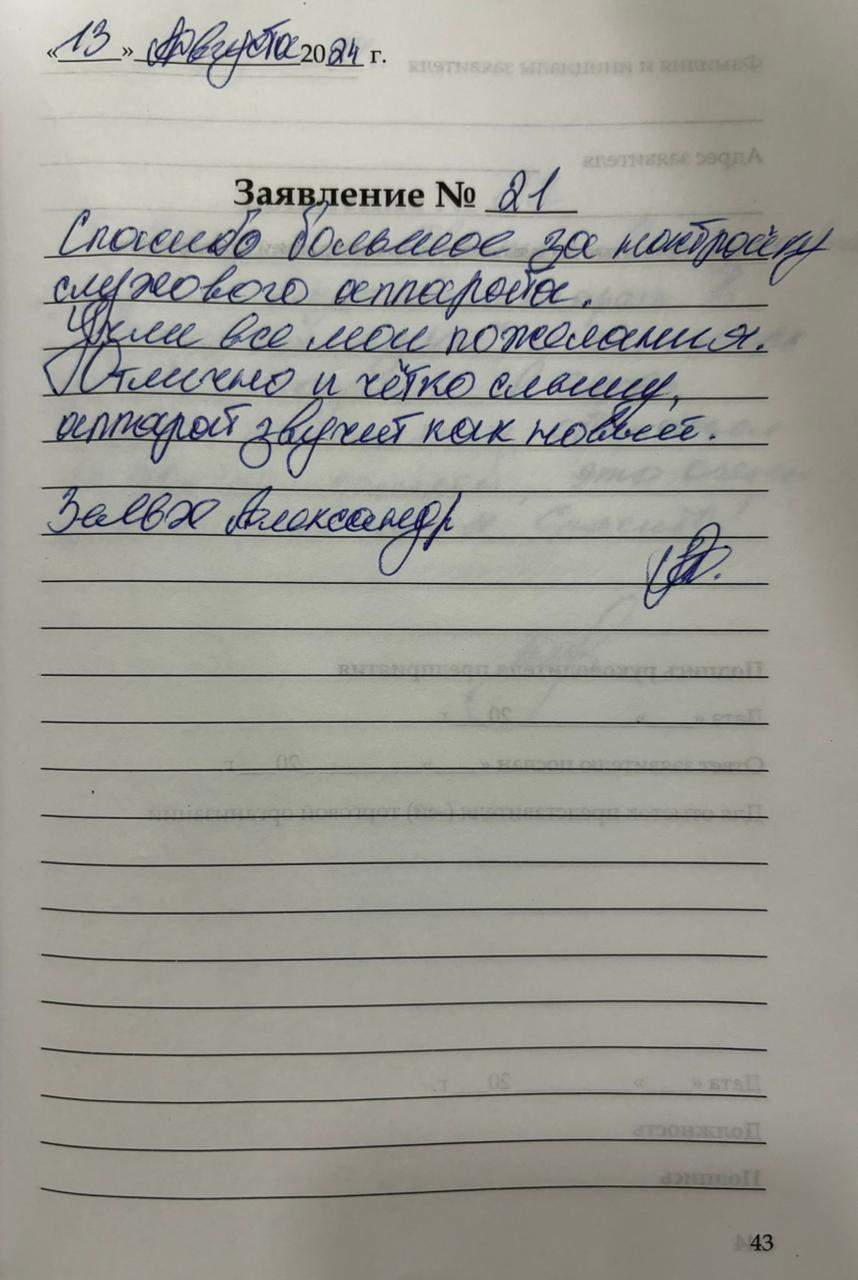 «13» Августа 2024 г.
Заявление № 21
Спасибо большое за настройку
слухового аппарата.
Учли все мои пожелания.
Отлично и чётко слышу,
аппарат звучит как новый.
Александр
43